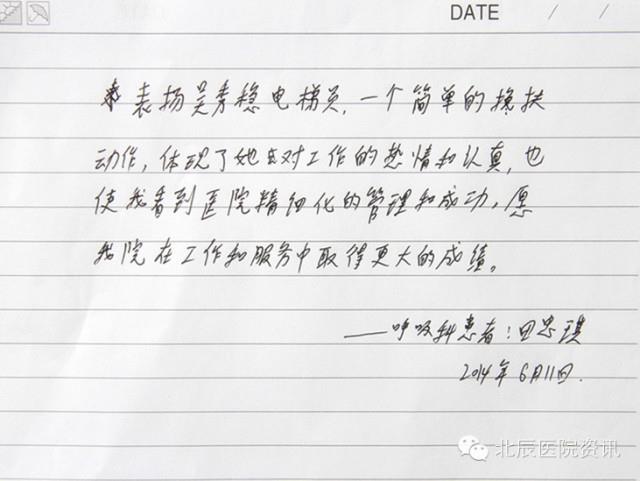 DATE / /
表扬吴秀稳电梯员,一个简单的搀扶
动作,体现了她对工作的热情和认真,也
使我看到医院精细化的管理和成功,愿
我院在工作和服务中取得更大的成绩。
——呼吸科患者:田忠琪
2014年6月11日.
北辰医院资讯